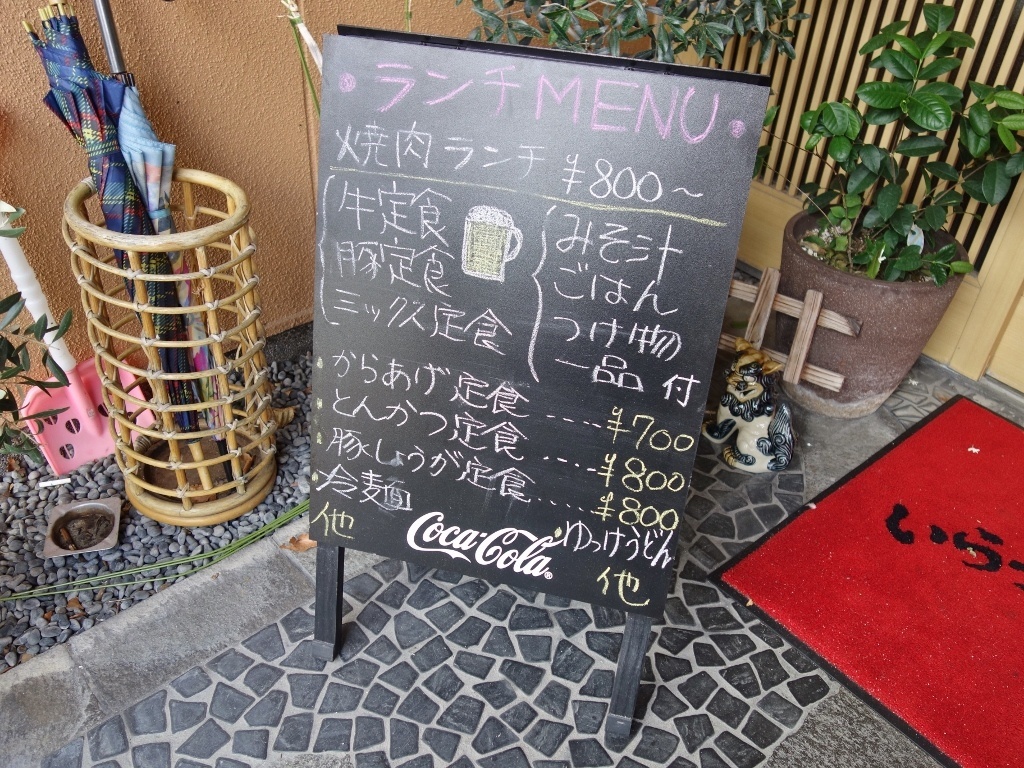 ・ランチMENU・
焼肉ランチ ¥800~
牛定食
豚定食
ミックス定食
みそ汁
ごはん
つけ物
一品 付
からあげ定食 ---- ¥700
とんかつ定食 ---- ¥800
豚しょうが定食 .... ¥800
冷麺
ゆっけうどん
他
Coca-Cola®
他
いらっ